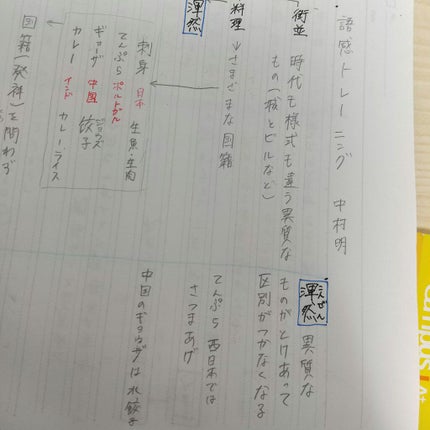 語感トレーニング 中村明
街並
時代も様式も違う異質な
もの(とビルなど)
料理→さまざまな国籍
渾然
刺身 日本 生魚・生肉
てんぷら ポルトガル
ギョーザ 中国 餃子
カレー インド カレーライス
国籍(発祥)を問わず
こんぜん
渾然 異質な
ものがとけあって
区別がつかなくなる
てんぷら 西日本では
さつまあげ
中国のギョウザは水餃子
ampus
A+